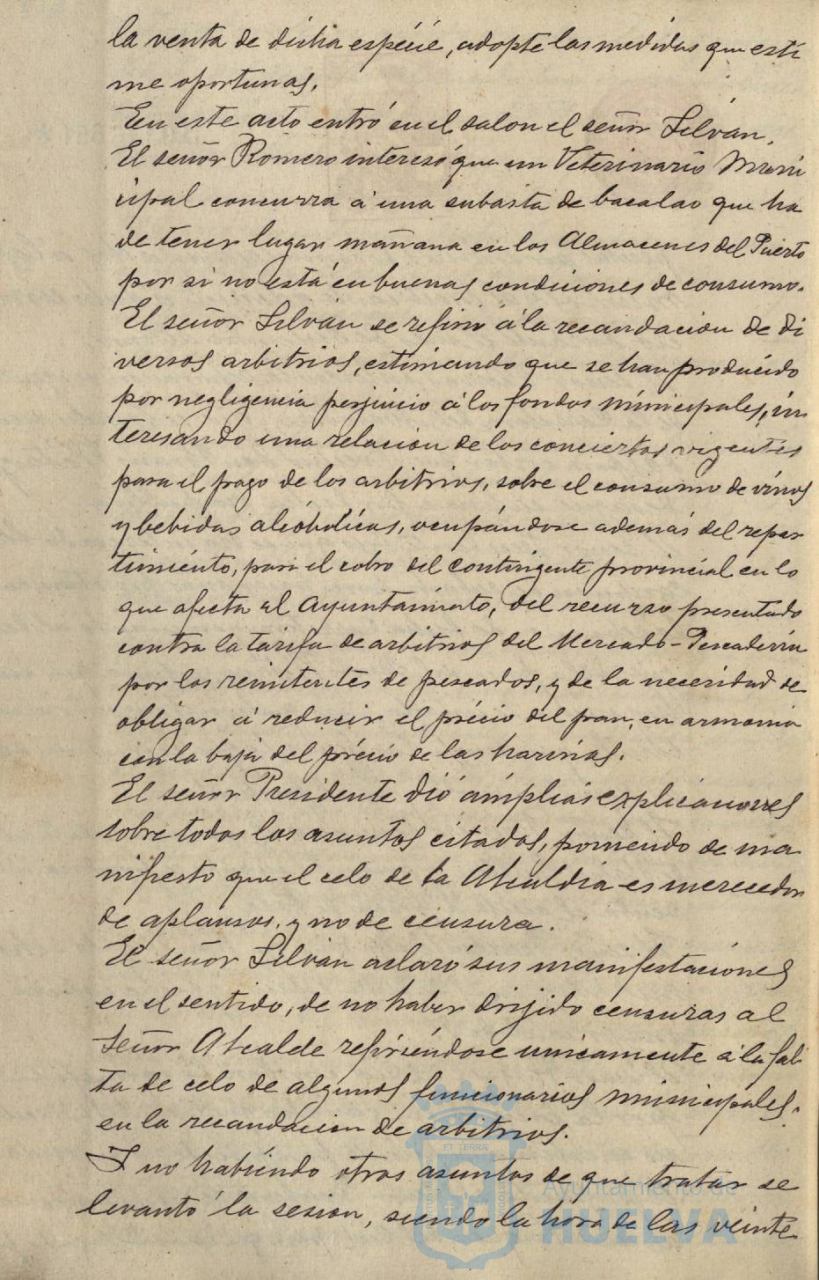 la venta de dicha espécie, adopte las medidas que esti
me oportunas.
En este acto entró en el salon el señor Silván.
El señor Romero interesó que un Veterinario Muni
cipal concurra á una subasta de bacalao que ha
de tener lugar mañana en los Almacenes del Puerto
por si no está en buenas condiciones de consumo.
El señor Silván se refirió á la recaudacion de di
versos arbitrios, estimando que se han producido
por negligencia perjuicio á los fondos municipales, in
teresando una relacion de los conciertos vigentes
para el pago de los arbitrios, sobre el consumo de vinos
y bebidas alcóholicas, ocupándose además del repar
timiento, para el cobro del contingente provincial en lo
que afecta al Ayuntamiento, del recurso presentado
contra la tarifa de arbitrios del Mercado-Pescaderia
por los remitentes de pescados, y de la necesidad de
obligar á reducir el précio del pan, en armonia
con la baja del précio de las harinas.
El señor Presidente dió ámplias explicaciones
sobre todos los asuntos citados, poniendo de ma
nifiesto que el celo de la Alcaldia es merecedor
de aplausos, y no de censura.
El señor Silván aclaró sus manifestaciones
en el sentido, de no haber dirijido censuras al
Señor Alcalde refiriéndose unicamente á la fal
ta de celo de algunos funcionarios municipales,
en la recaudacion de arbitrios.
Y no habiendo otros asuntos de que tratar se
levantó la sesion, siendo la hora de las veinte
Ayuntamiento de
HUELVA